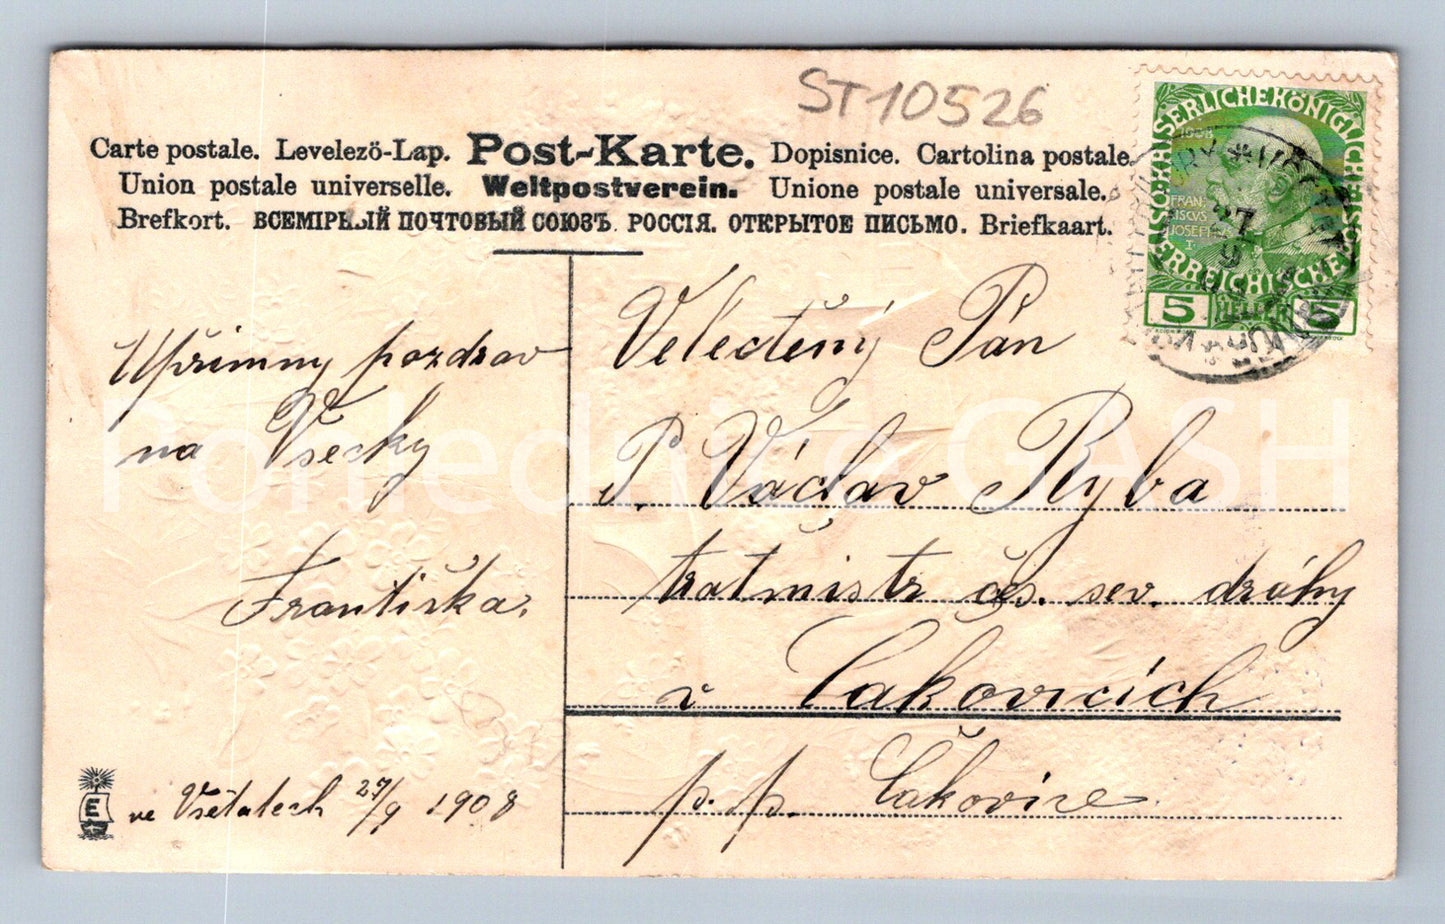 ST10526
Carte postale. Levelező-Lap. Post-Karte. Dopisnice. Cartolina postale.
Union postale universelle. Weltpostverein. Unione postale universale.
Brefkort. ВСЕМІРНЫЙ ПОЧТОВЫЙ СОЮЗЪ. РОССІЯ. ОТКРЫТОЕ ПИСЬМО. Briefkaart.
1908
FRAN
CISCVS
JOSEPH
I
5 HELLER 5
27
9
Upřimny pozdrav
na Všecky
Františka.
ve Všetatech 27/9 1908
E
Velectěný Pán
P. Václav Ryba
tratmistr čes. sev. dráhy
v Čakovicích
p. p. Čakovice.
Pohlednice GASH